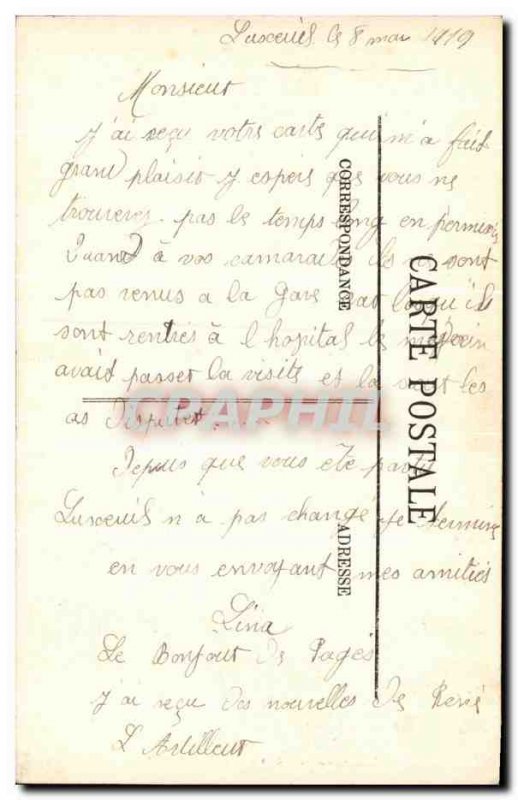 Luxeuil le 8 mai 1919
Monsieur
J'ai reçu votre carte qui m'a fait
grand plaisir J espere que vous ne
trouverez pas le temps long en permission
Quand à vos camarades ils ne sont
pas venus a la Gare car lorsqu'ils
sont rentres à l hopital le medecin
avait passer la visite et la sont les
as
Depuis que vous ete partit
Luxeuil n a pas changé je termine
en vous envoyant mes amitiés
Lina
Le Bonjour de Pages
J'ai reçu des nouvelles de René
L Artilleur
CORRESPONDANCE
ADRESSE
CARTE POSTALE
CPAPHIL